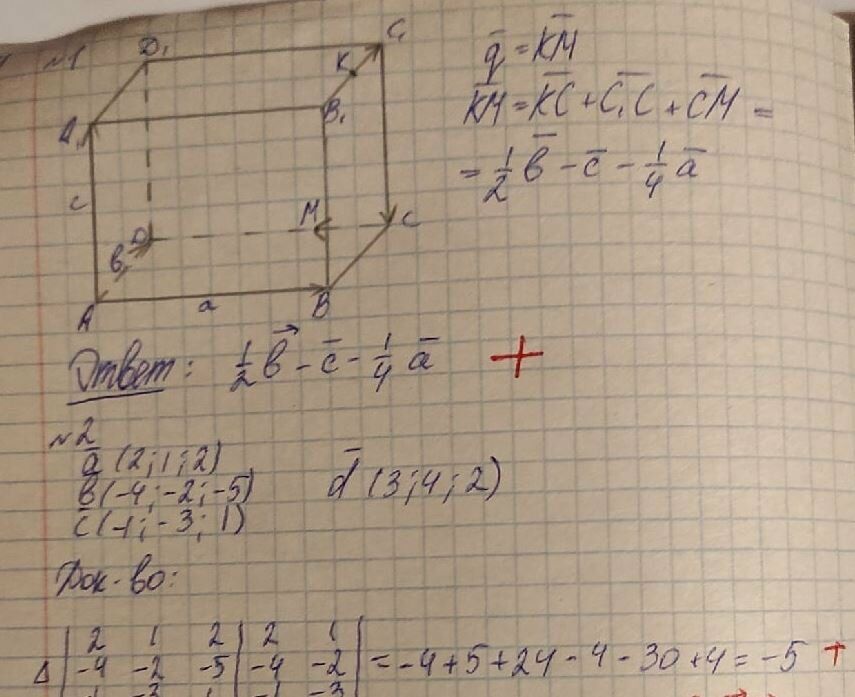 №1
D₁ C₁
K
A₁ B₁
c
M
D C
b
A a B
q̄ = K̄M̄
K̄M̄ = K̄C̄ + C̄₁C̄ + C̄M̄ =
= 1/2 b̄ - c̄ - 1/4 ā
Ответ: 1/2 b⃗ - c̄ - 1/4 ā +
№2
ā (2; 1; 2)
b̄ (-4; -2; -5) d̄ (3; 4; 2)
c̄ (-1; -3; 1)
Док-во:
Δ | 2 1 2 | 2 1 |
| -4 -2 -5 | -4 -2 | = -4 + 5 + 24 - 4 - 30 + 4 = -5 +
| -1 -3 1 | -1 -3 |